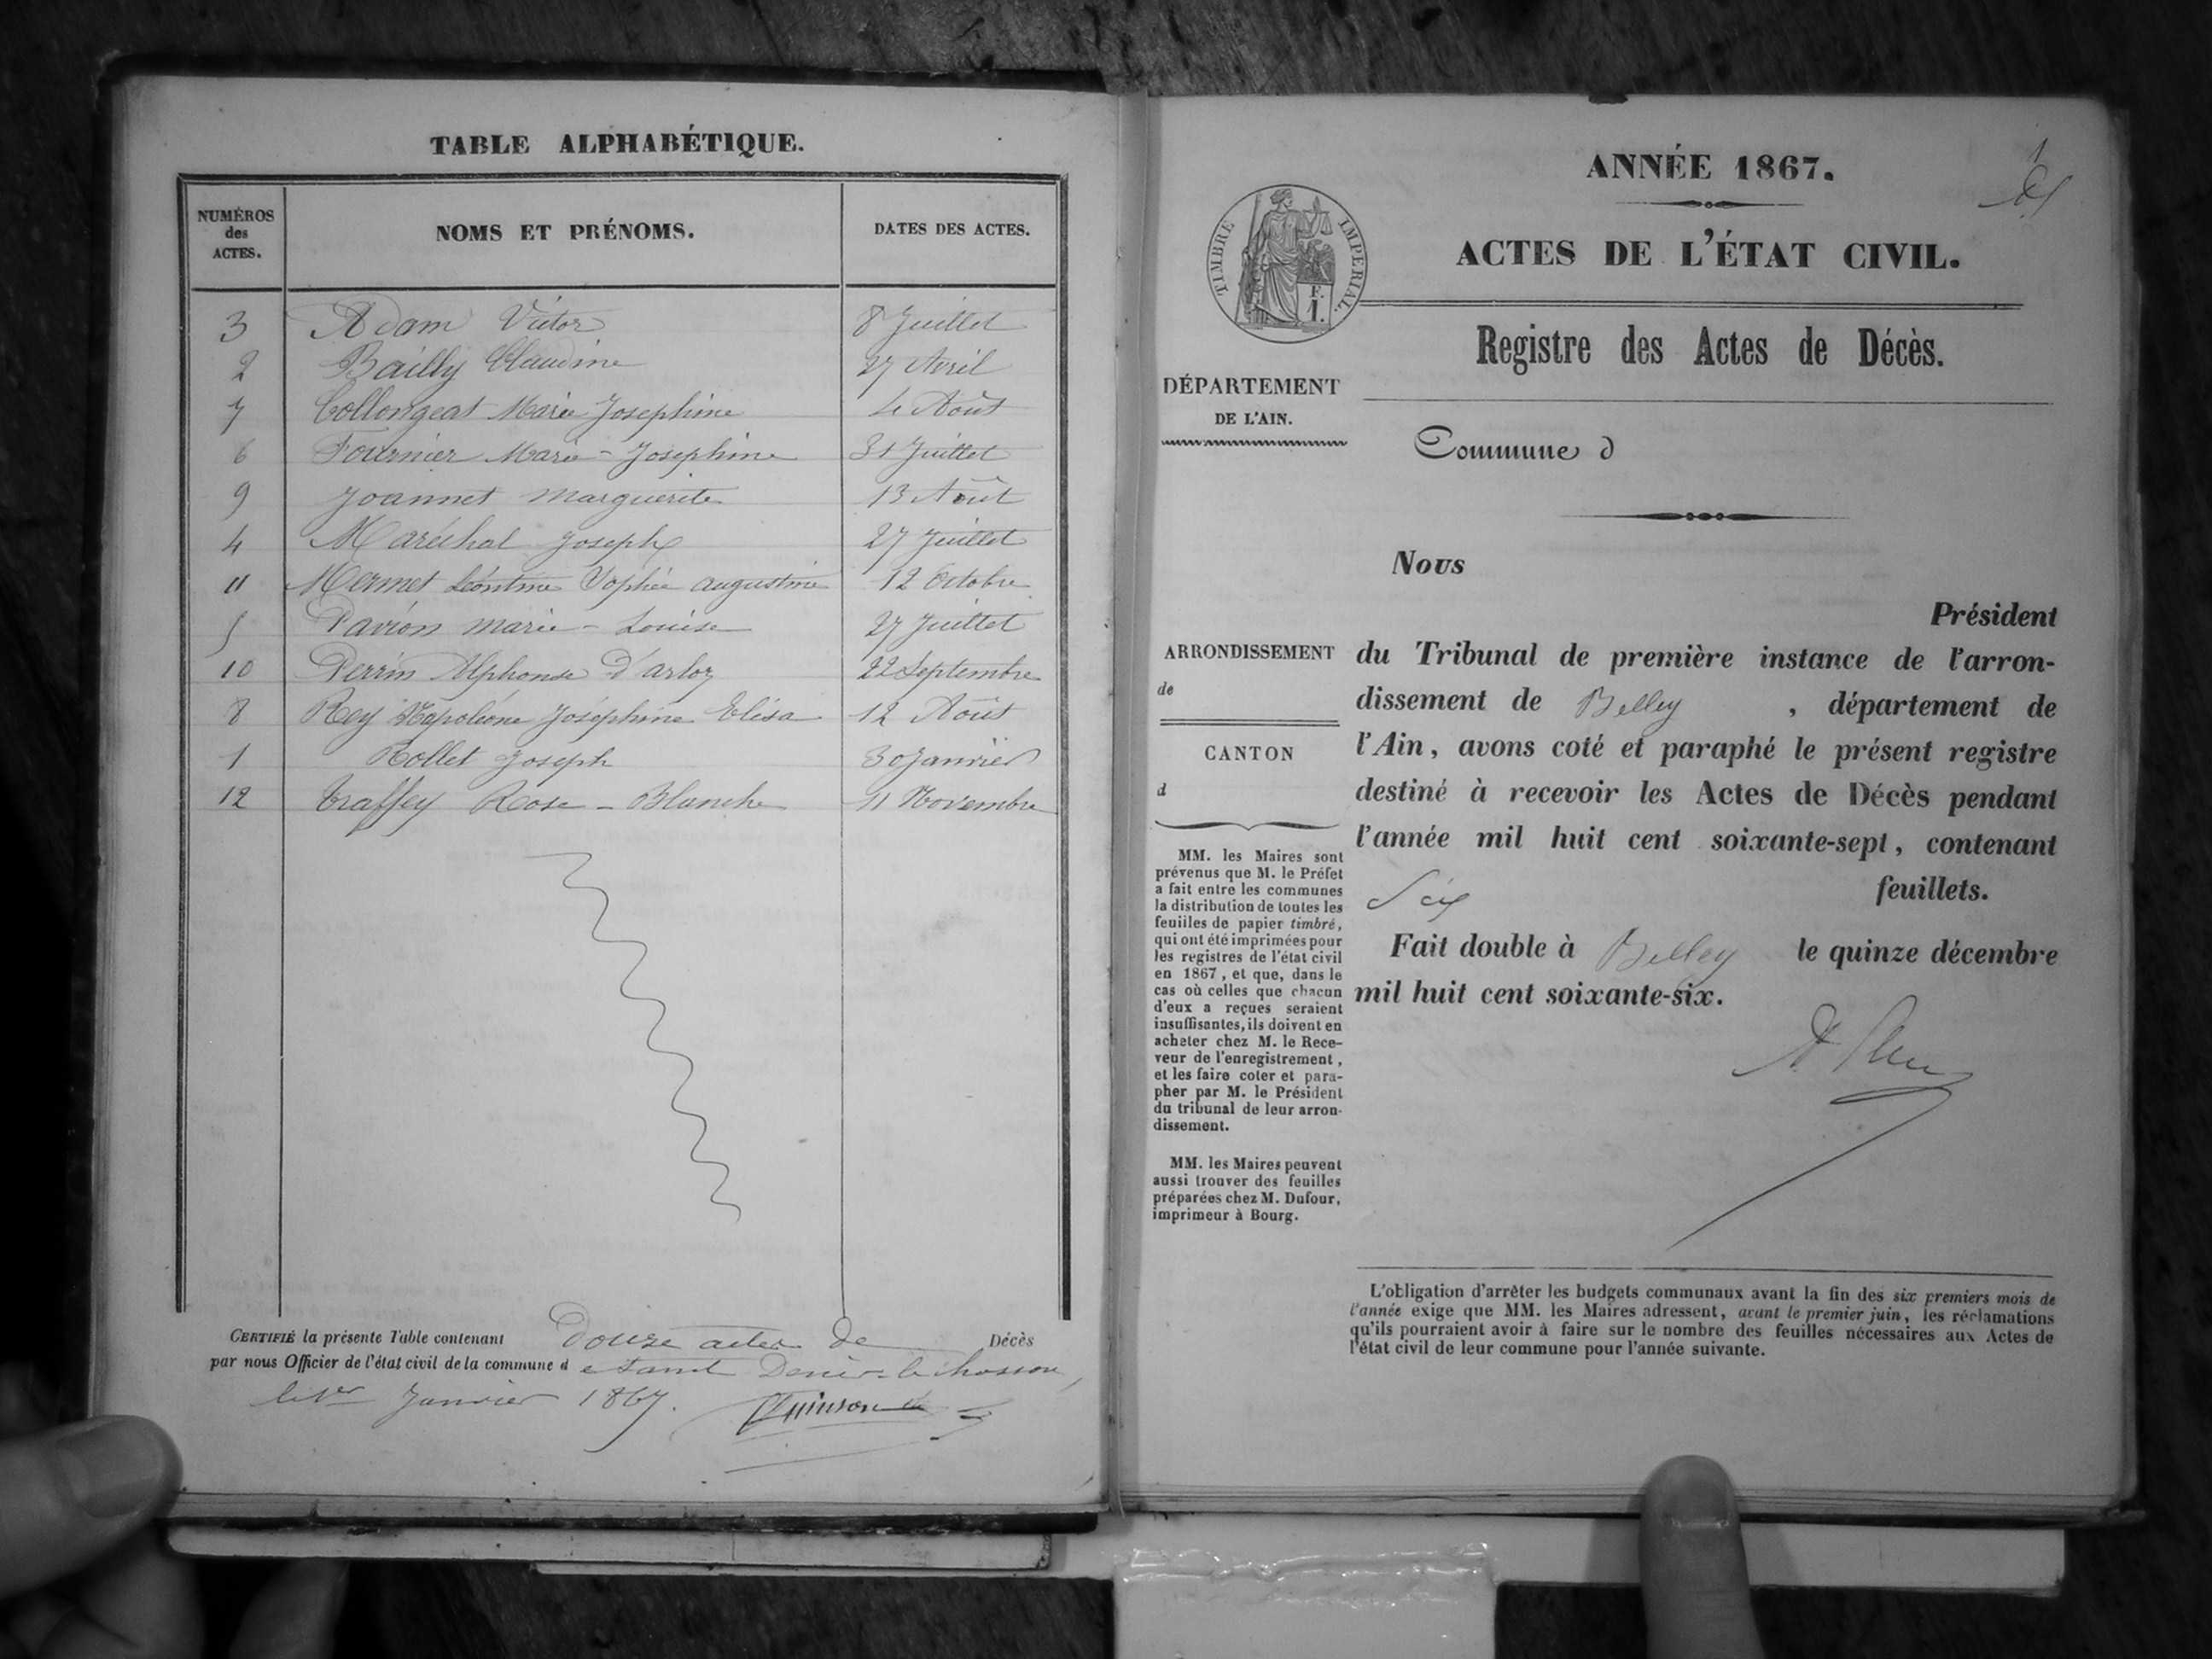 TABLE ALPHABÉTIQUE.
NUMÉROS des ACTES. NOMS ET PRÉNOMS. DATES DES ACTES.
3 Adam Victor 8 Juillet
2 Bailly Claudine 27 Avril
7 Collongeat Marie Josephine 4 Août
6 Fournier Marie - Josephine 31 Juillet
9 Joannet Marguerite 13 Août
4 Maréchal Joseph 27 Juillet
11 Mermet Léontine Sophie augustine 12 Octobre
5 Pavion marie - Louise 27 Juillet
10 Perrin Alphonse D'arloz 22 Septembre
8 Rey Napoléone Joséphine Elisa 12 Août
1 Rollet Joseph 30 Janvier
12 Traffey Rose - Blanche 11 Novembre
CERTIFIÉ la présente Table contenant Douze actes de Décès
par nous Officier de l'état civil de la commune d e Saint Denis-le-chosson,
le 1er Janvier 1867.
1
ANNÉE 1867.
ACTES DE L'ÉTAT CIVIL.
TIMBRE IMPERIAL.
F. 1.
Registre des Actes de Décès.
DÉPARTEMENT
DE L'AIN.
Commune d
Nous
Président
ARRONDISSEMENT
de
CANTON
d
du Tribunal de première instance de l'arron-
dissement de Belley , département de
l'Ain, avons coté et paraphé le présent registre
destiné à recevoir les Actes de Décès pendant
l'année mil huit cent soixante-sept, contenant
Six feuillets.
Fait double à Belley le quinze décembre
mil huit cent soixante-six.
MM. les Maires sont
prévenus que M. le Préfet
a fait entre les communes
la distribution de toutes les
feuilles de papier timbré,
qui ont été imprimées pour
les registres de l'état civil
en 1867, et que, dans le
cas où celles que chacun
d'eux a reçues seraient
insuffisantes, ils doivent en
acheter chez M. le Rece-
veur de l'enregistrement,
et les faire coter et para-
pher par M. le Président
du tribunal de leur arron-
dissement.
MM. les Maires peuvent
aussi trouver des feuilles
préparées chez M. Dufour,
imprimeur à Bourg.
L'obligation d'arrêter les budgets communaux avant la fin des six premiers mois de
l'année exige que MM. les Maires adressent, avant le premier juin, les réclamations
qu'ils pourraient avoir à faire sur le nombre des feuilles nécessaires aux Actes de
l'état civil de leur commune pour l'année suivante.